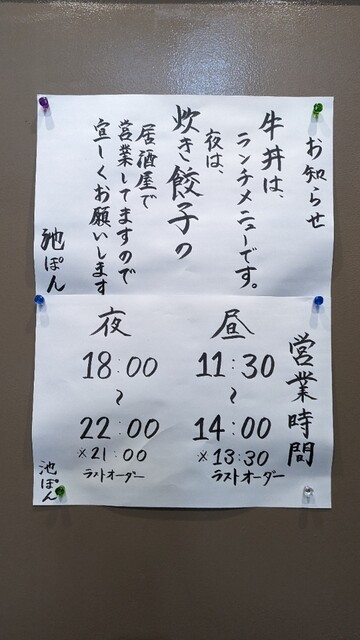 お知らせ
牛丼は、
ランチメニューです。
夜は、
炊き餃子の
居酒屋で
営業してますので
宜しくお願いします
池ぽん
営業時間
昼
11:30
〜
14:00
×13:30
ラストオーダー
夜
18:00
〜
22:00
×21:00
ラストオーダー
池ぽん